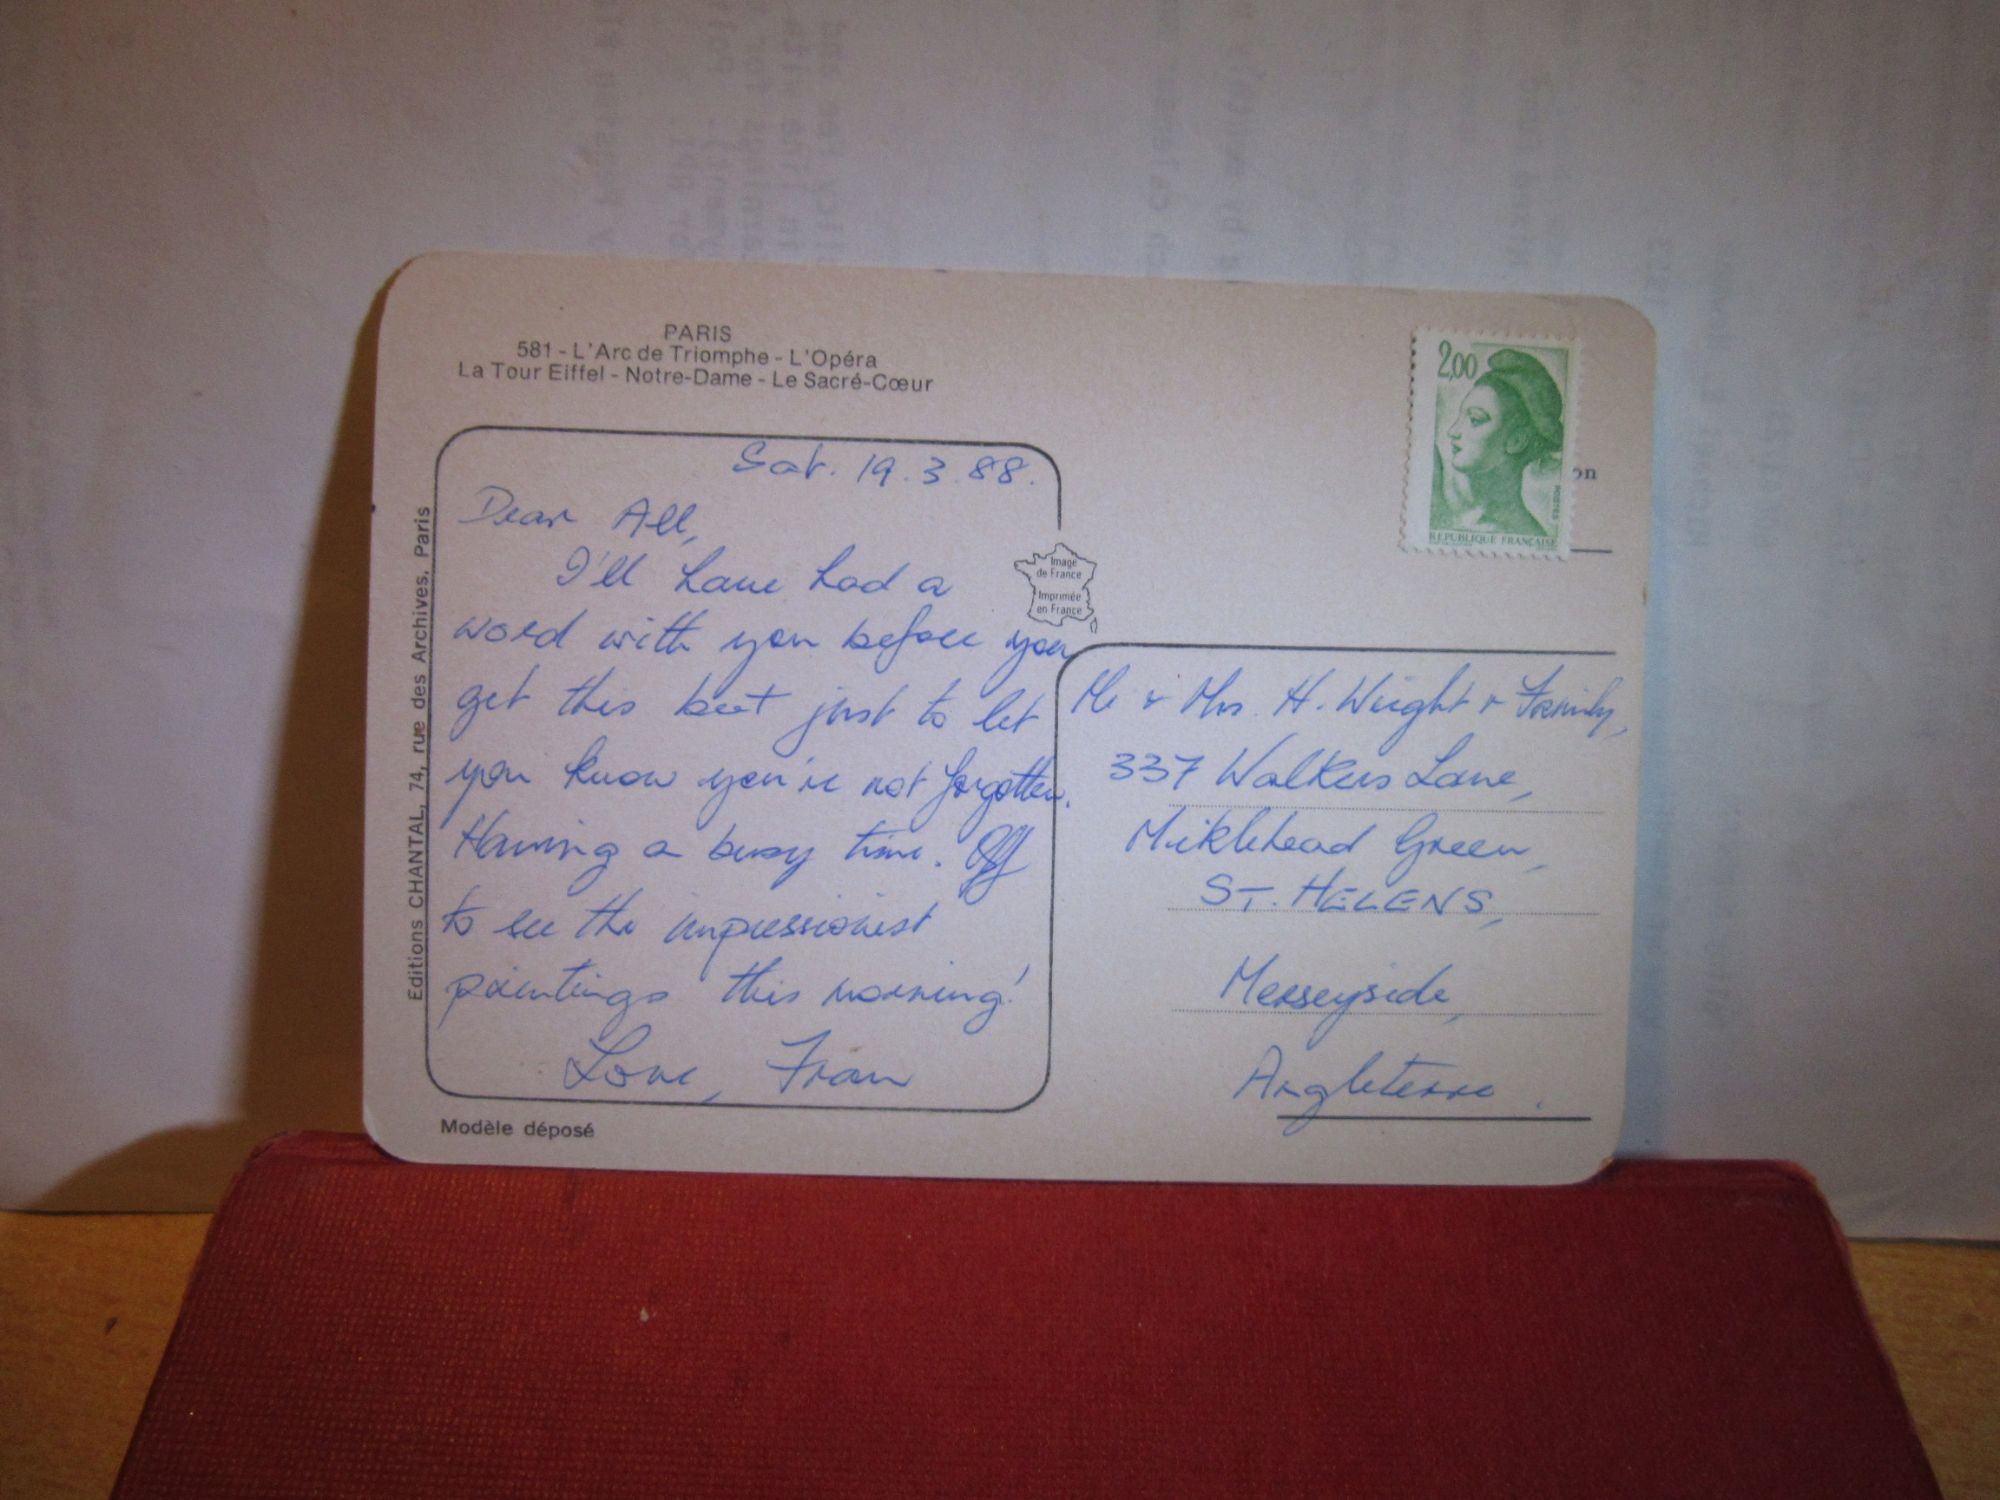 PARIS
581 - L'Arc de Triomphe - L'Opéra
La Tour Eiffel - Notre-Dame - Le Sacré-Cœur
Editions CHANTAL, 74, rue des Archives, Paris
Sat. 19.3.88.
Dear All,
I'll have had a
word with you before you
get this but just to let
you know you're not forgotten.
Having a busy time. Off
to see the impressionist
paintings this morning!
Love, Fran
Modèle déposé
Image
de France
Imprimée
en France
2,00
POSTES
REPUBLIQUE FRANÇAISE
on
Mr & Mrs. H. Wright & Family,
337 Walkers Lane,
Miklehead Green,
ST. HELENS,
Merseyside,
Angleterre.